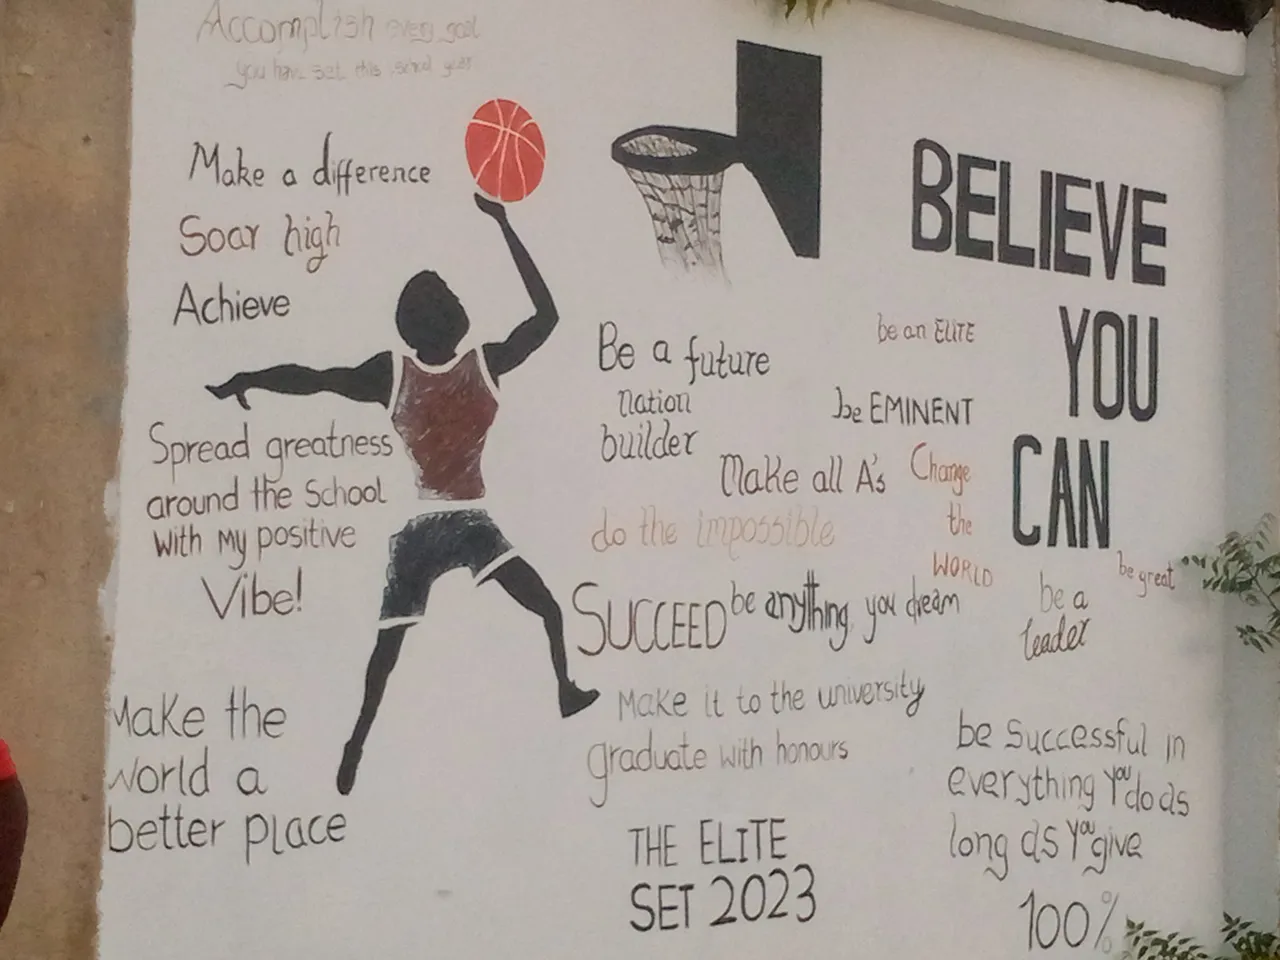 Accomplish every goal
you have set this school year
Make a difference
Soar high
Achieve
Spread greatness
around the School
with my positive
Vibe!
Make the
World a
better place
BELIEVE
YOU
CAN
Be a future
nation
builder
be an ELITE
be EMINENT
Make all A's
Change
the
WORLD
do the impossible
SUCCEED
be anything you dream
be great
be a
leader
Make it to the university
graduate with honours
be Successful in
everything You do as
long as You give
100%
THE ELITE
SET 2023